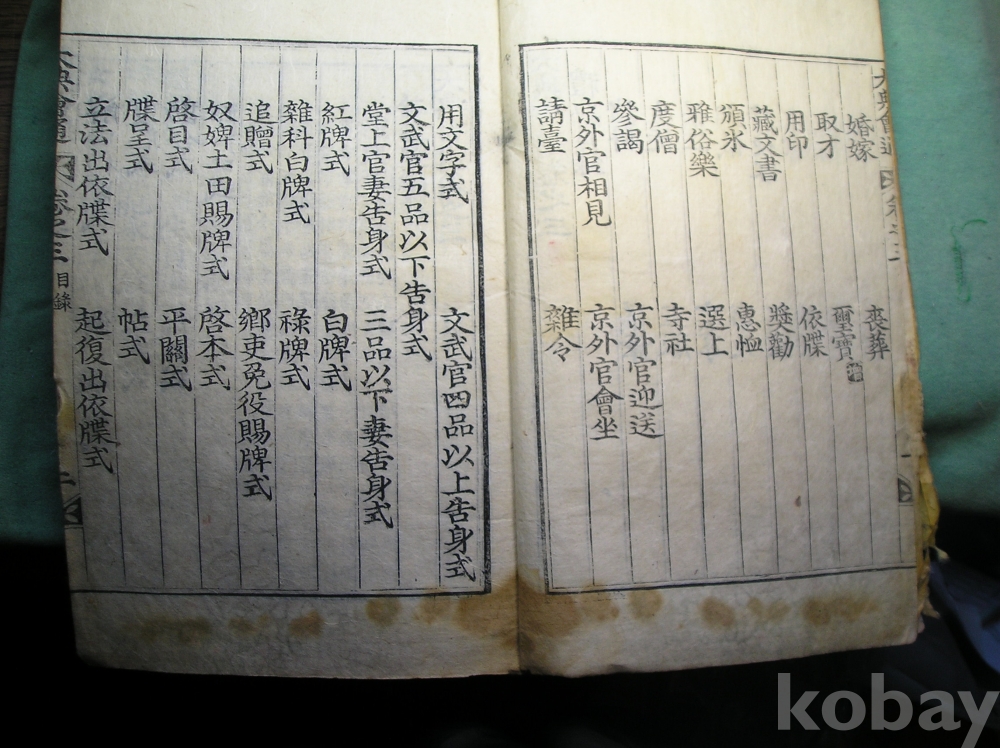 大典會通 卷之三 一
婚嫁 喪葬
取才 璽寶
用印 依牒
藏文書 獎勸
頒氷 惠恤
雅俗樂 選上
度僧 寺社
參謁 京外官迎送
京外官相見 京外官會坐
請臺 雜令
用文字式 文武官四品以上告身式
文武官五品以下告身式
堂上官妻告身式 三品以下妻告身式
紅牌式 白牌式
雜科白牌式 祿牌式
追贈式 鄉吏免役賜牌式
奴婢土田賜牌式 啓本式
啓目式 平關式
牒呈式 帖式
立法出依牒式 起復出依牒式
大典會通 卷之三 目錄 二
kobay